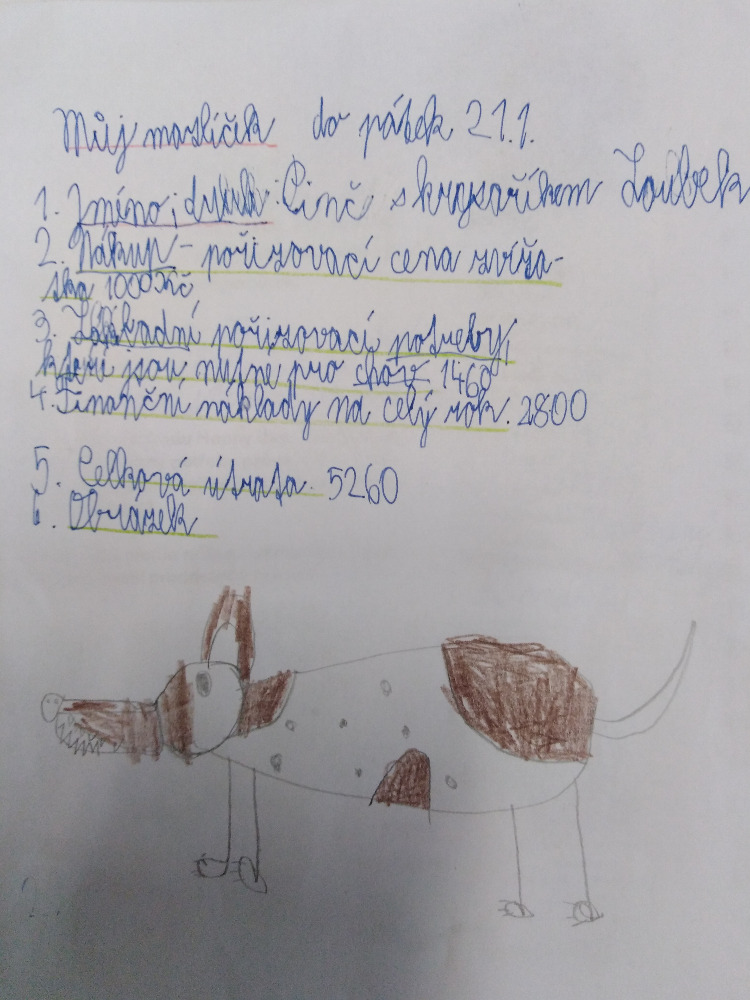 Můj mazlíček do pátek 21.1.
1. Jméno, druh: Činč s krysaříkem Loubek
2. Nákup - pořizovací cena zvířa-
tka 1000Kč
3. Základní pořizovací potřeby,
které jsou nutné pro chov 1460
4. Finanční náklady na celý rok. 2800
5. Celková útrata. 5260
6. Obrázek